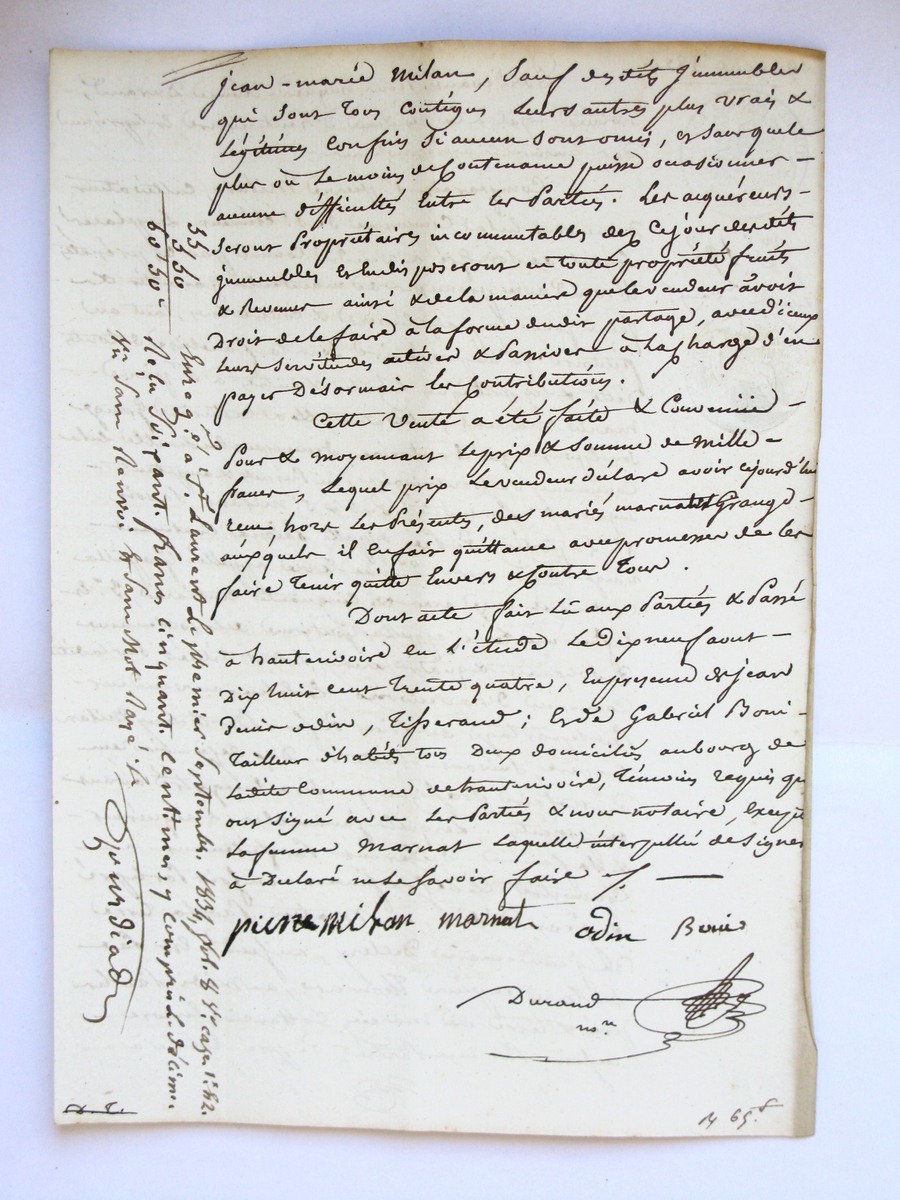 jean-marie Milan, Sauf desdits Jmmeubles
qui Sont tous Contigus Leurs autres plus vrais &
Légitimes Confins Si aucun Sont omis, et Sans que le
plus ou Le moins de Contenance puisse ocasionner -
aucune difficultés Entre les Parties. Les acquéreurs -
Seront Propriétaires incommutables dès Cejour desdits
jmmeubles Et En disposeront en toute propriété fruits
& Revenus ainsi & de la manière que le vendeur avoit
Droit de le faire à la forme dudit partage, avec d'iceux
Leurs Servitudes actives & Passives à La Charge d'en
payer Désormais les Contributions.
Cette Vente a été faite & Convenüe -
Pour & moyennant Le prix & Somme de Mille -
francs, Lequel prix Le vendeur déclare avoir cejourd'hui
reçu hors Les Présentes, des mariés marnat et Grange -
auxquels il En fait quittance avec promesse de les
faire Tenir quitte Envers & Contre Tous.
Dont acte fait Lü aux Parties & Passé
à hauterivoire en L'étude Le dix neuf aout -
Dix huit cent Trente quatre, En présence de jean
Denis odin, Tisserand; Et de Gabriel Boni -
Tailleur d'habits tous Deux domiciliés au bourg de
Ladite Commune de hauterivoire, Témoins requis qui
ont Signé avec Les Parties & nous notaire, Excepté
La femme Marnat Laquelle interpellé de Signer
à Declaré ne Le Savoir faire ./. —
pierre milan marnat odin Boni
Durand
nore
35
5 50
60 50c
Enregé à St Laurent Le premier Septembre 1834, fol. 88 vo case 1re & 2.
Reçu Soixante francs cinquante centimes, y compris L. décime.
Nu Sans Renvoi & Sans Mot Rayé ./.
Gourdiad